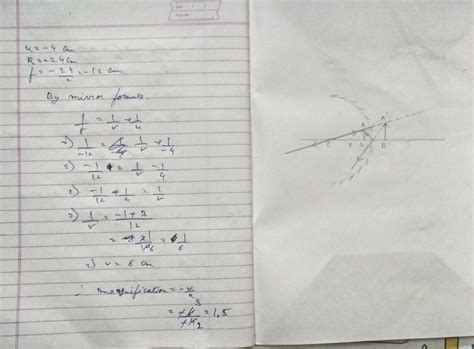 u = -4 cm
R = -24 cm
f = -24/2 = -12 cm
By mirror formula,
1/f = 1/v + 1/u
=) 1/-12 = 1/v + 1/-4
=) -1/12 = 1/v - 1/4
=) -1/12 + 1/4 = 1/v
=) 1/v = -1+3/12
= 2/12 6 = 1/6
=) v = 6 cm
∴ magnification = -v/u
= +6 3/+4 2 = 1.5
C F